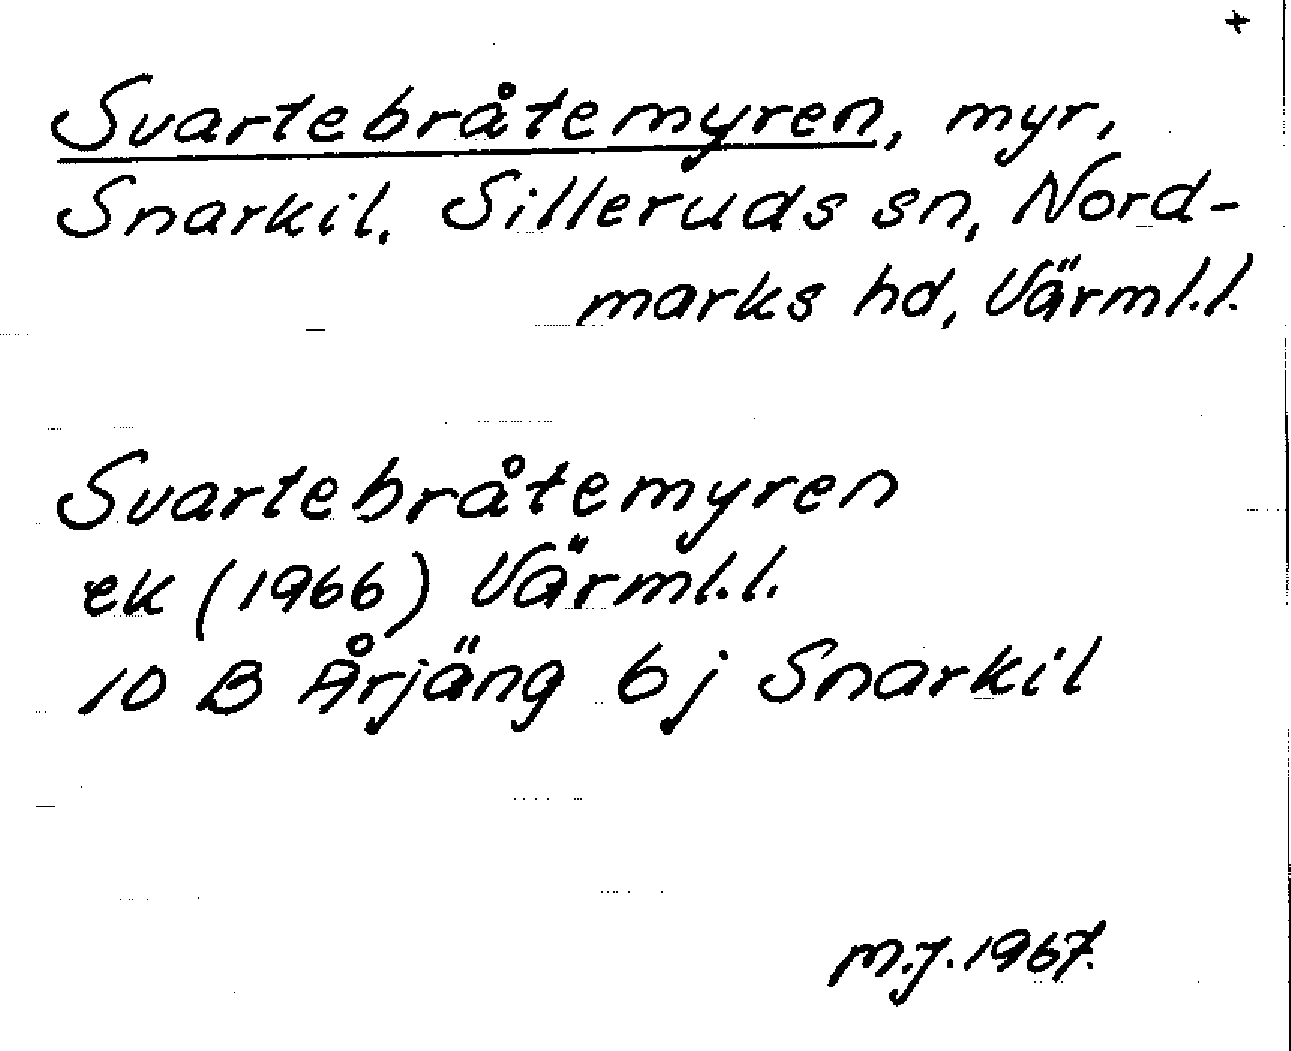 +
Svartebråtemyren, myr,
Snarkil, Silleruds sn, Nord-
marks hd, Värml.l.
Svartebråtemyren
ek (1966) Värml.l.
10 B Årjäng 6j Snarkil
M.J. 1967.